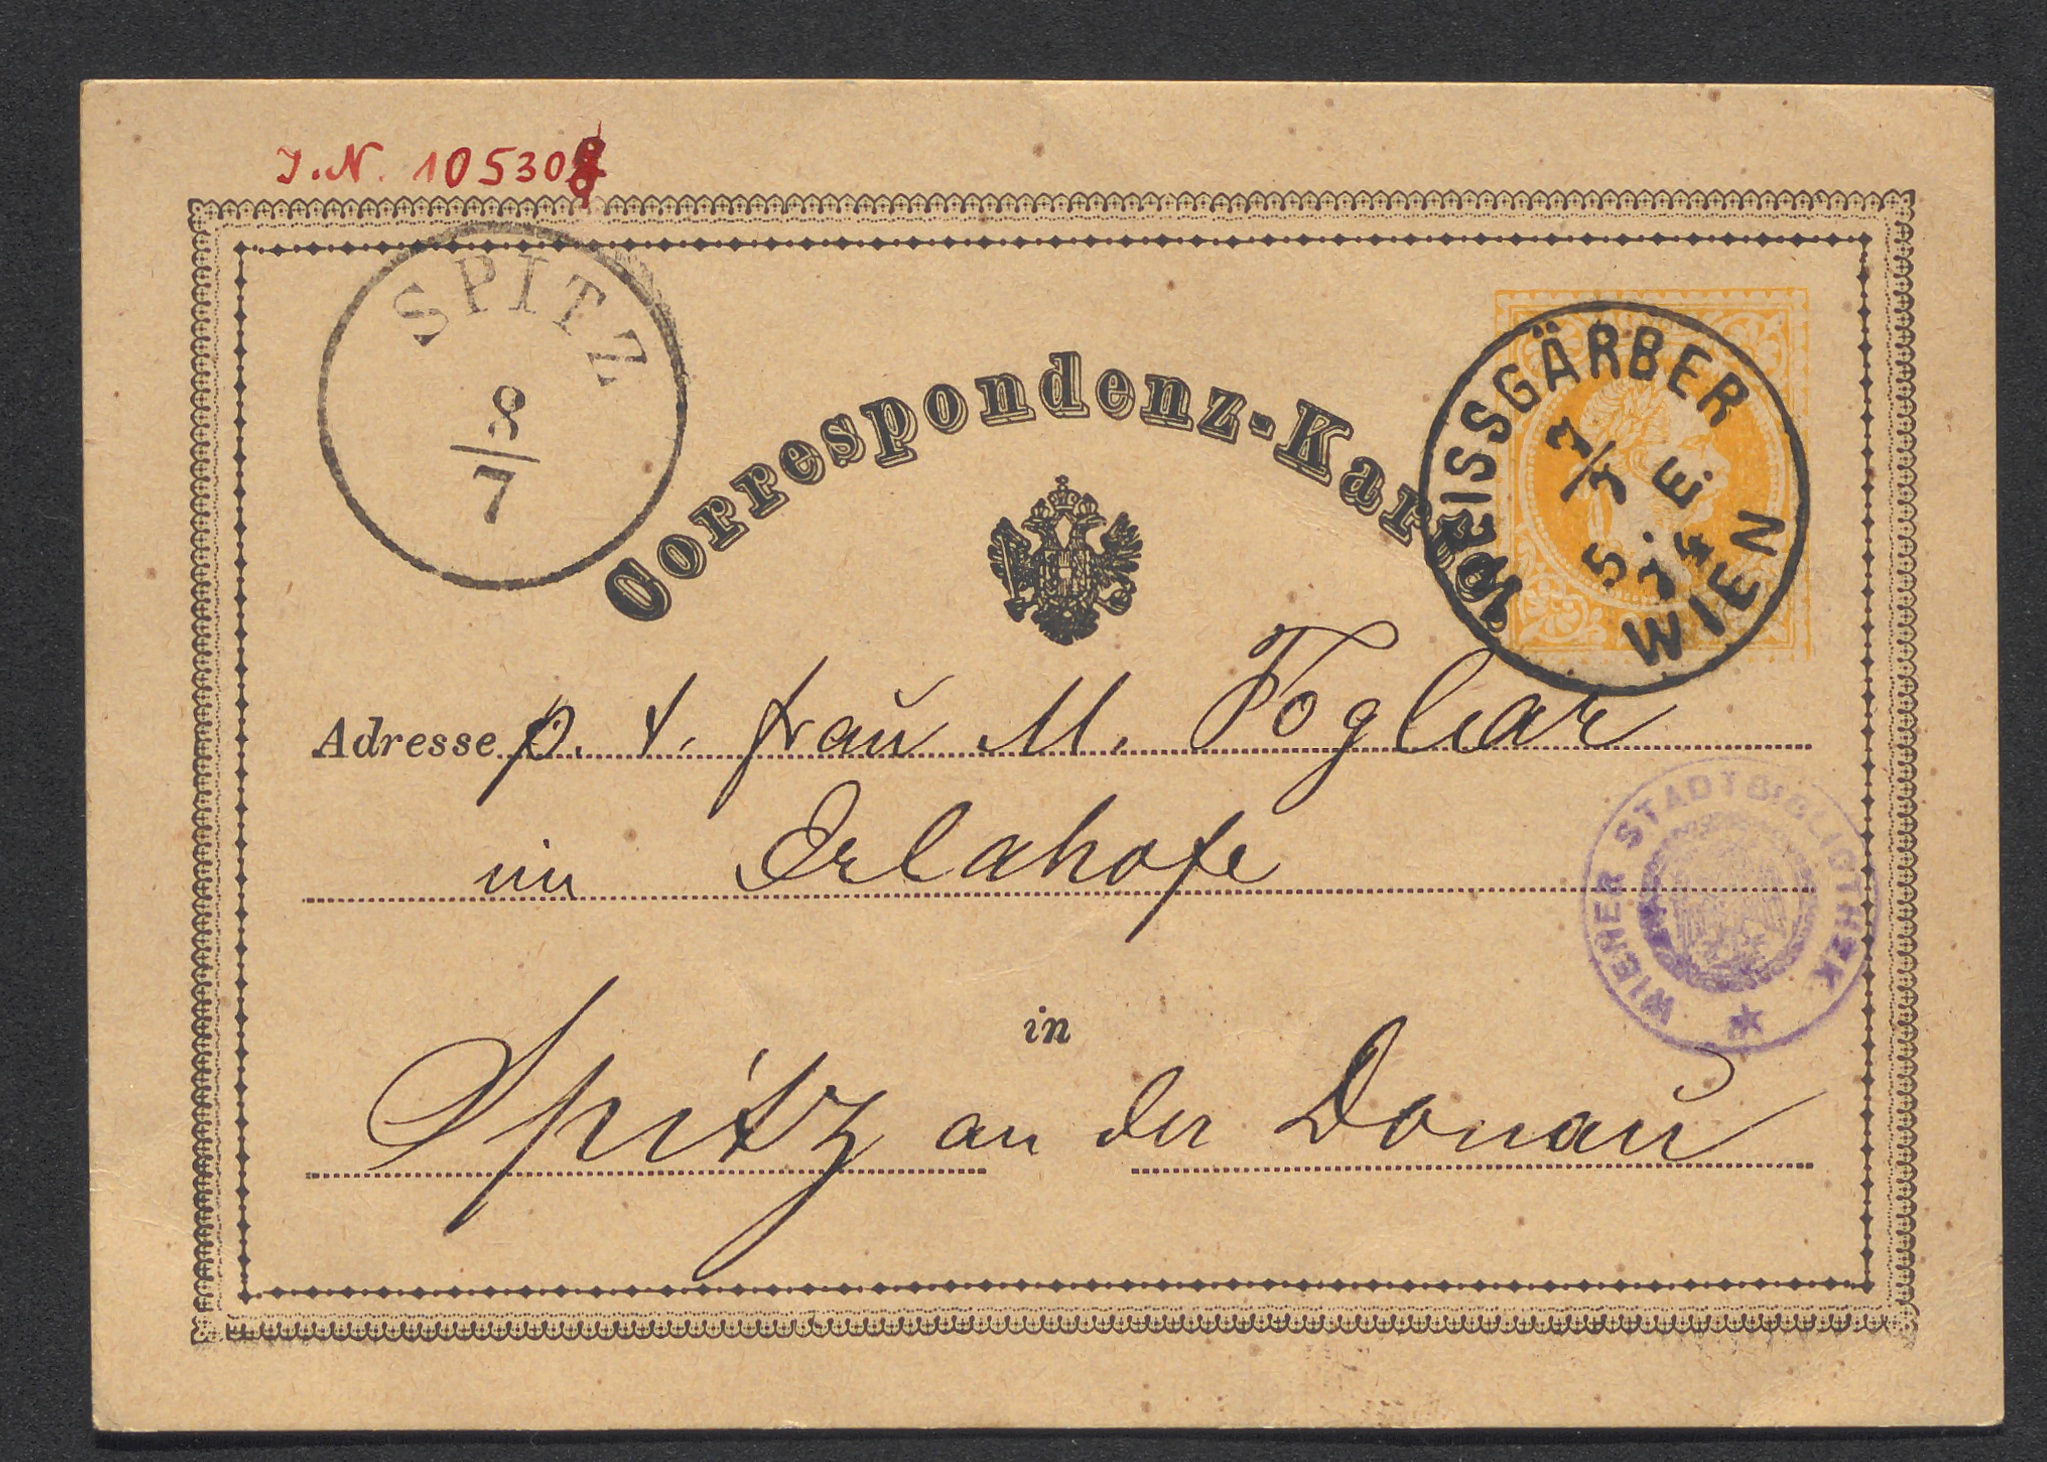 J.N. 10530
SPITZ
8/7
Correspondenz-Karte.
WEISSGÄRBER
7/7
5. E.
74
WIEN
Adresse p. t. Frau M. Foglar
im Erlahofe
WIENER STADTBIBLIOTHEK
in
Spitz an der Donau